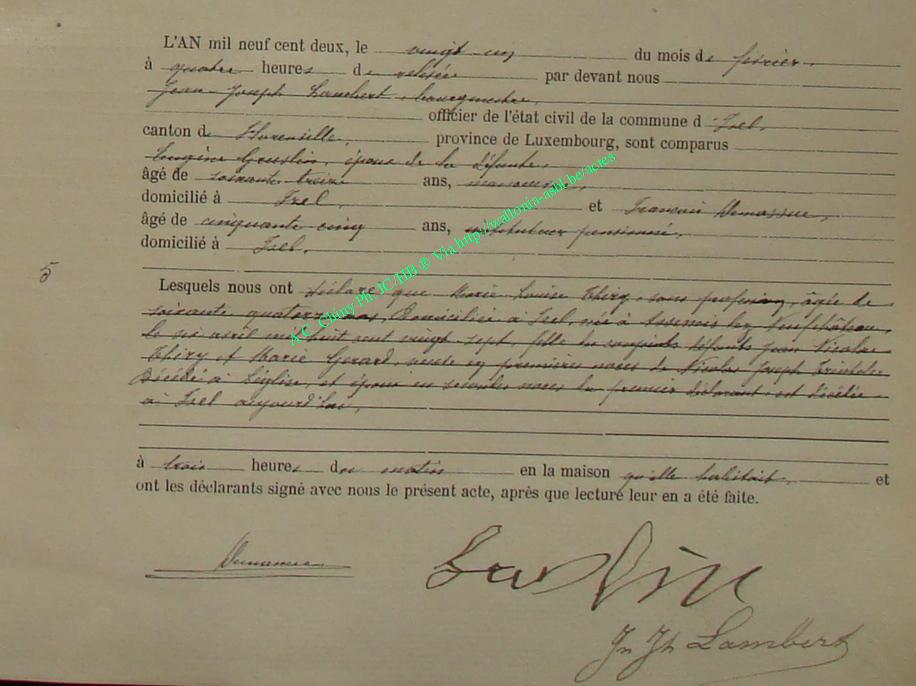 L'AN mil neuf cent deux, le vingt un du mois de février,
à quatre heures de relevée par devant nous
Jean Joseph Lambert, bourgmestre,
officier de l'état civil de la commune d'Izel,
canton de Florenville, province de Luxembourg, sont comparus
Eugène Goustin, époux de la défunte,
âgé de soixante treize ans, manoeuvre,
domicilié à Izel, et François
âgé de cinquante cinq ans, instituteur pensionné,
domicilié à Izel,
5
Lesquels nous ont déclaré que Marie Louise Thiry, sans profession, âgée de
soixante quatorze ans, domiciliée à Izel, née à Assenois lez Neufchâteau,
le six avril mil huit cent vingt sept, fille des conjoints défunts Jean Nicolas
Thiry et Marie Gerard, veuve en premières noces de Nicolas Joseph
décédé à Léglise, et épouse en secondes noces du premier déclarant est décédée
à Izel aujourd'hui,
à trois heures du matin en la maison qu'elle habitait, et
ont les déclarants signé avec nous le présent acte, après que lecture leur en a été faite.
Jn Jh Lambert
A.C. Chiny Ph JC/HB ® Via http://wallonia-asbl.be/actes